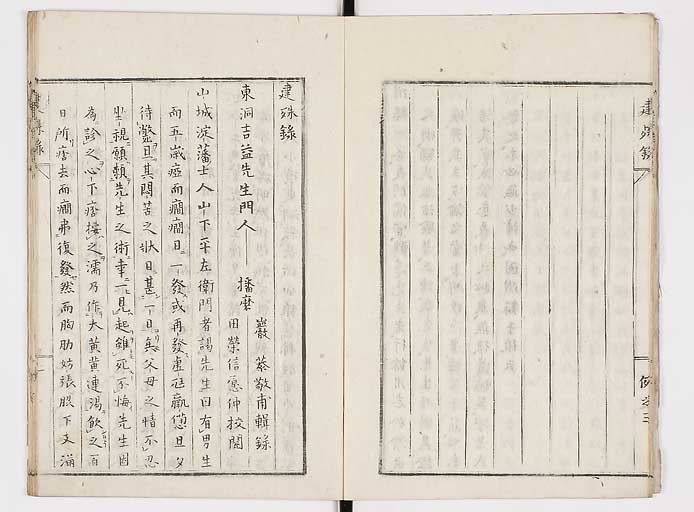 建殊錄
例之三
建殊錄
東洞吉益先生門人 播磨
巖 恭敬甫輯錄
田榮信愿仲校閱
山城淀藩士人山下平左衛門者謁先生曰有男生
而五歲瘂而癇癇日一發或再發虛尪羸憊旦夕
待斃且其悶苦之狀日甚一日矣父母之情不忍
坐視願賴先生之術幸一見起雖死不悔先生因
為診之心下痞按之濡乃作大黃黃連湯飲之百
日所痞去而癇弗復發然而胸肋妨張脇下支滿